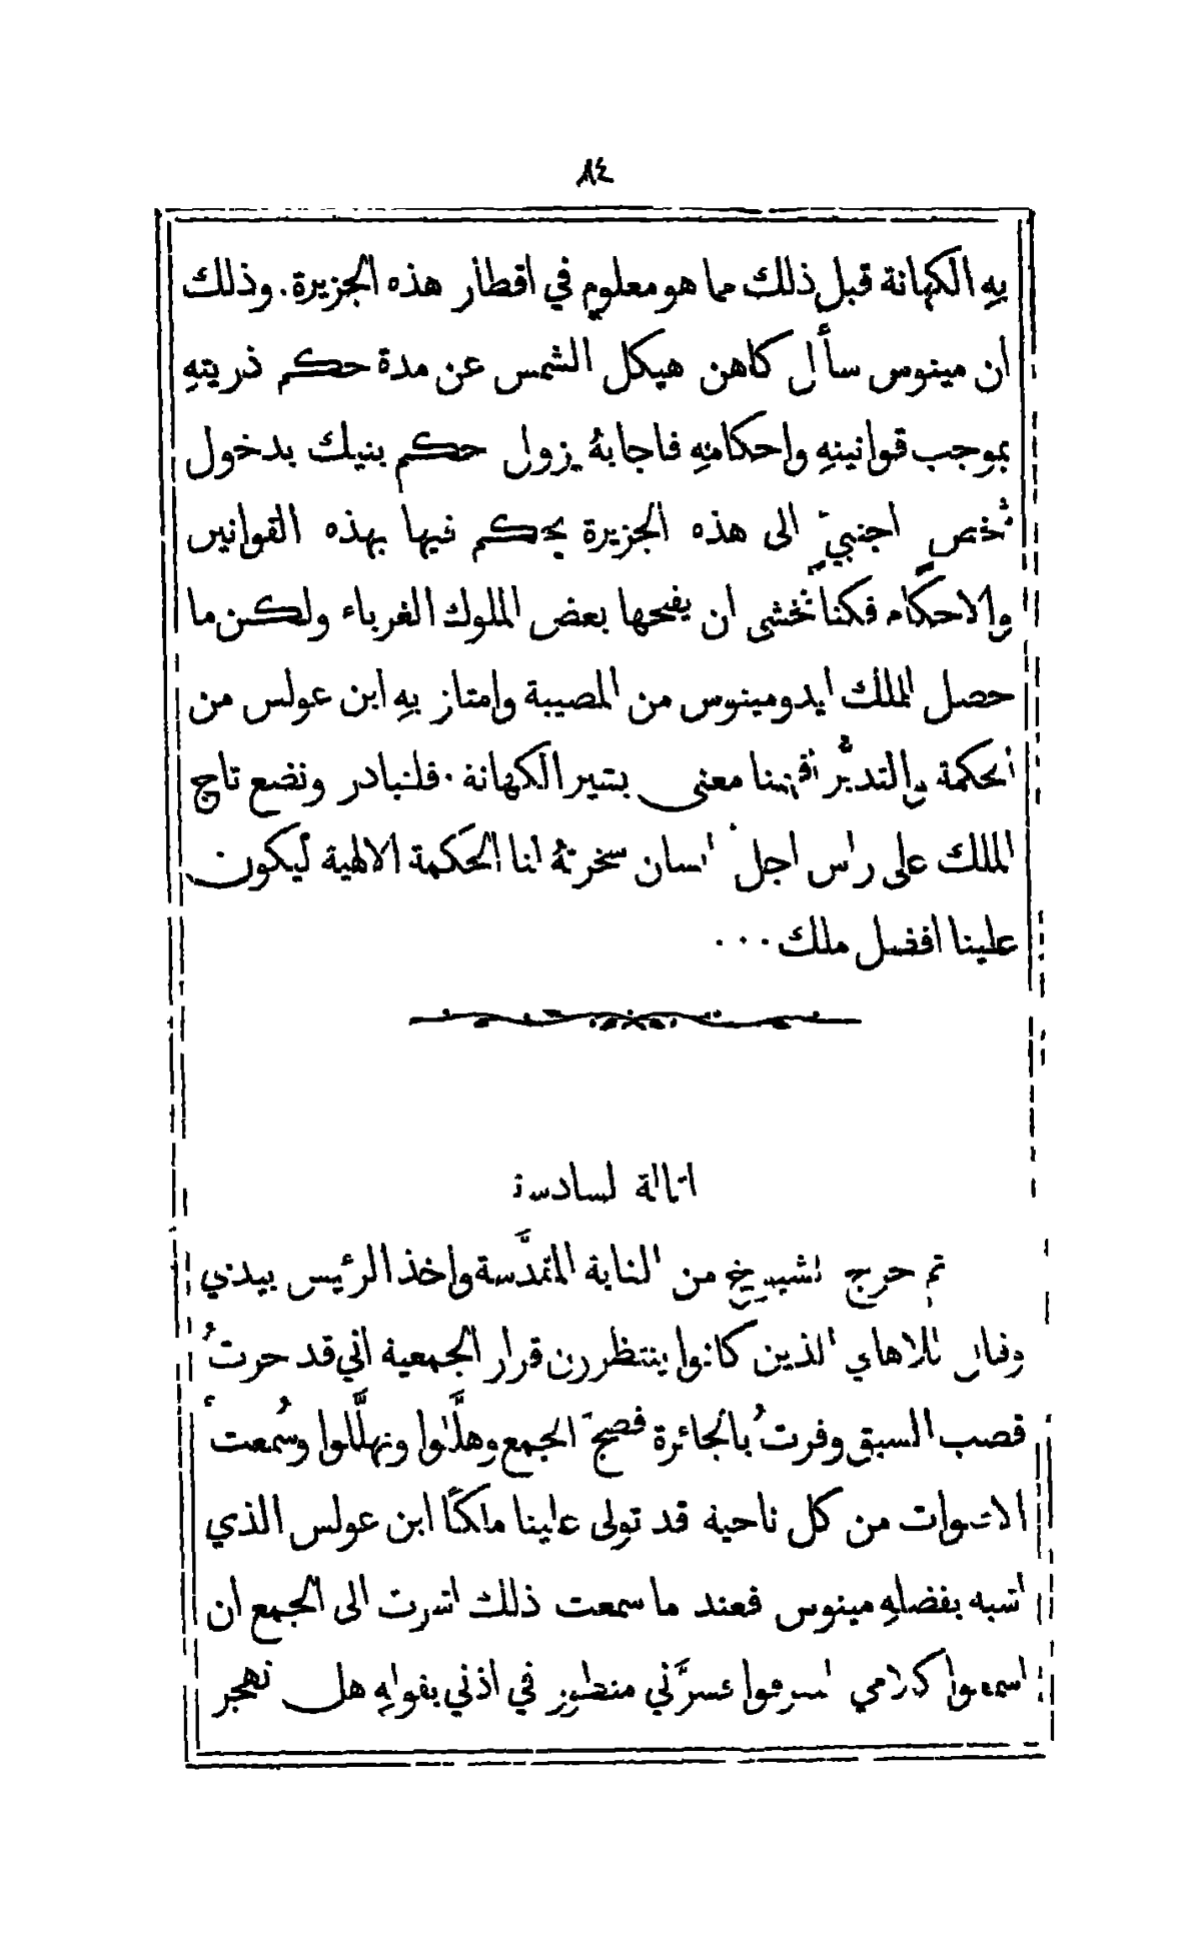 ٨٤
بهِ الكهانة قبل ذلك مما هو معلوم في اقطار هذه الجزيرة. وذلك
ان مينوس سأل كاهن هيكل الشمس عن مدة حكم ذريتهِ
بموجب قوانينهِ واحكامهِ فاجابهُ يزول حكم بنيك بدخول
شخصٍ اجنبيٍّ الى هذه الجزيرة يحكم فيها بهذه القوانين
والاحكام فكنا نخشى ان يفتحها بعض الملوك الغرباء ولكن ما
حصل للملك ايدومينوس من المصيبة وامتاز بهِ ابن عولس من
الحكمة والتدبُّر افهمنا معنى بشير الكهانة. فلنبادر ونضع تاج
الملك على راس اجل انسان سخرتهُ لنا الحكمة الالهية ليكون
علينا افضل ملك...
المقالة السادسة
ثم خرج الشيوخ من الغابة المقدَّسة واخذ الرئيس بيدي
وقال للاهالي الذين كانوا ينتظرون قرار الجمعية اني قد حزتُ
قصب السبق وفزتُ بالجائزة فضجَّ الجمع وهلَّلوا وتهلَّلوا وسُمعت
الاصوات من كل ناحية قد تولى علينا ملكًا ابن عولس الذي
اشبه بفضلهِ مينوس فعند ما سمعت ذلك اشرت الى الجمع ان
اسمعوا كلامي منطور في اذني بقولهِ هل تهجر